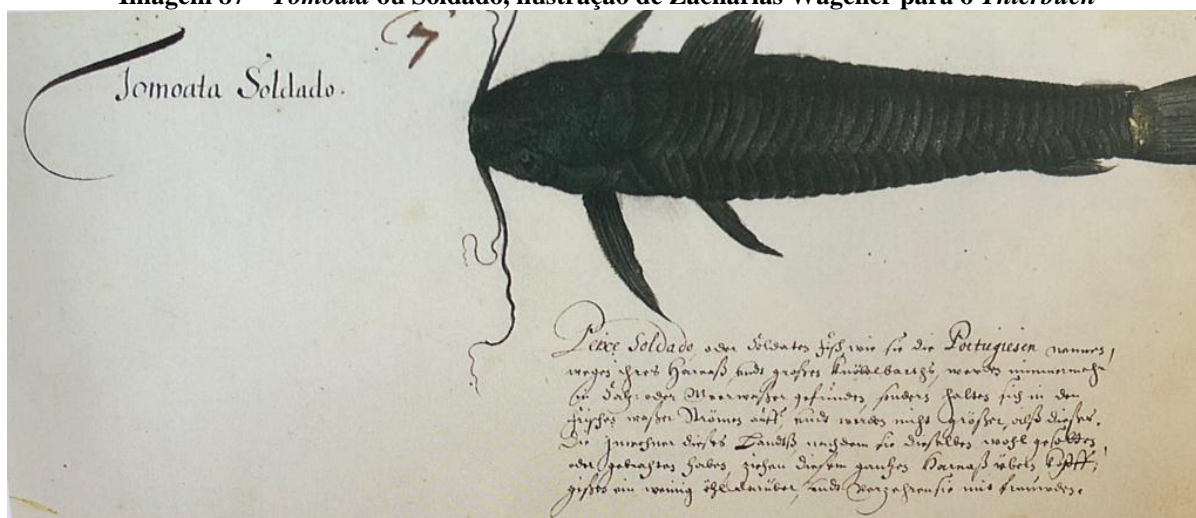 Imagem 87 – Tomoata ou Soldado, ilustração de Zacharias Wagener para o Thierbuch
7
Tomoata Soldado.
Peixe Soldado, oder Soldaten fisch wie sie die Portugiesen nennen,
wegen ihres Harnaß, undt großen Knöbelbarths, werden nimmermehr
in oder Meerwaßer gefunden, sondern halten sich in den
frischen waßer Strömen auff, undt werden nicht größer, alß dieser.
Die Inwohner dieses Landtß nachdem sie dieselben wohl gesotten
oder gebrahten haben, ziehen diesem gantzen Harnaß übern Kopff,
gißen ein wennig öhl darüber, undt verzehren sie mit